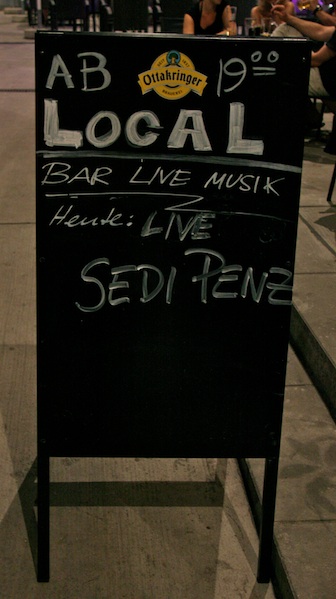 AB Ottakringer 19 00
LOCAL
BAR LIVE MUSIK
Heute: LIVE
SEDI PENZ